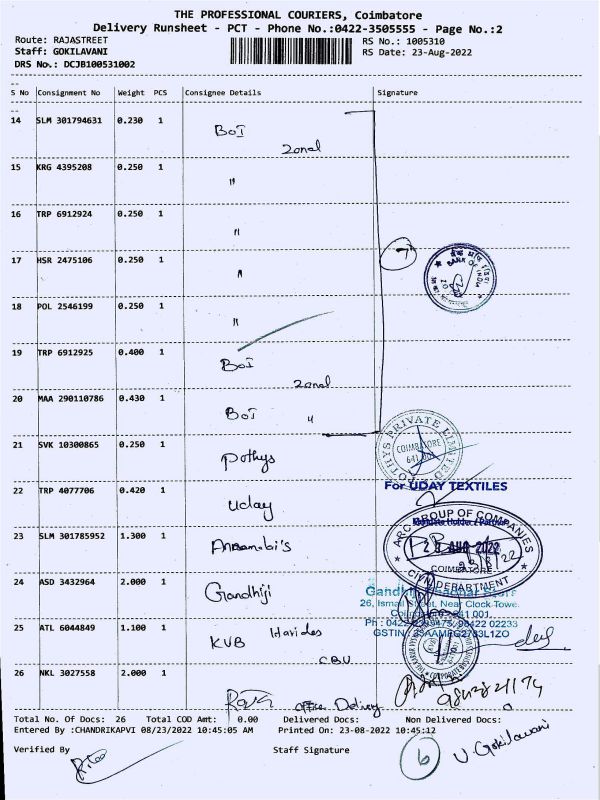 THE PROFESSIONAL COURIERS, Coimbatore
Delivery Runsheet - PCT - Phone No.:0422-3505555 - Page No.:2
Route: RAJASTREET RS No.: 1005310
Staff: GOKILAVANI RS Date: 23-Aug-2022
DRS No.: DCJB100531002
S No Consignment No Weight PCS Consignee Details Signature
14 SLM 301794631 0.230 1 BOI Zonal
15 KRG 4395208 0.250 1 "
16 TRP 6912924 0.250 1 "
17 HSR 2475106 0.250 1 " 7
BANK OF INDIA
18 POL 2546199 0.250 1 "
19 TRP 6912925 0.400 1 BOI Zonal
20 MAA 290110786 0.430 1 BOI "
21 SVK 10300865 0.250 1 Pothys
POTHYS PRIVATE LIMITED
COIMBATORE
22 TRP 4077706 0.420 1 Uday
For UDAY TEXTILES
23 SLM 301785952 1.300 1
ARC GROUP OF COMPANIES
AUG 2022
COIMBATORE
CIVIL DEPARTMENT
24 ASD 3432964 2.000 1 Gandhiji
26, Ismail Street, Near Clock Tower
25 ATL 6044849 1.100 1 KVB CBU
26 NKL 3027558 2.000 1 Office Delivery
Total No. Of Docs: 26 Total COD Amt: 0.00 Delivered Docs: Non Delivered Docs:
Entered By :CHANDRIKAPVI 08/23/2022 10:45:05 AM Printed On: 23-08-2022 10:45:12
Verified By Staff Signature 6 V. Gokilavani